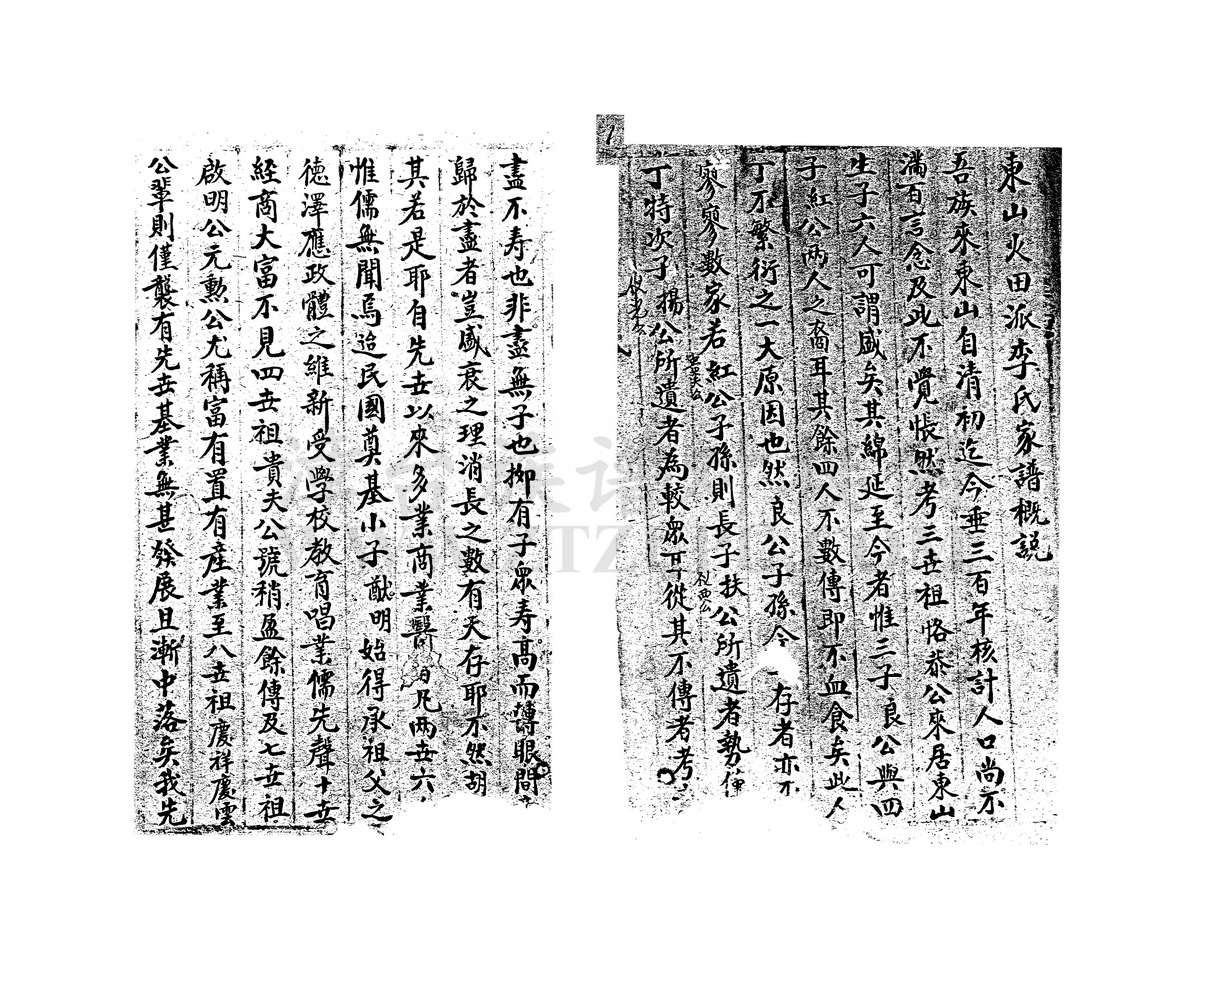 1
東山火田派李氏家譜概説
吾族來東山自清初迄今垂三百年核計人口尚不
滿百言念及此不覺悵然考三世祖恪恭公來居東山
生子六人可謂盛矣其綿延至今者惟三子良公與四
子紅公兩人之裔耳其餘四人不數傳即不血食矣此人
丁不繁衍之一大原因也然良公子孫今 存者亦
寥寥數家若紅公子孫則長子扶公所遺者勢僅
丁特次子揚公所遺者為較眾耳從其不傳者考
盡不寿也非盡無子也抑有子眾寿高而轉眼間
歸於盡者豈盛衰之理消長之數有天存耶不然胡
其若是耶自先世以來多業商業醫 凡兩世六
惟儒無聞焉迨民國奠基小子猷明始得承祖父之
德澤應政體之維新受學校教育唱業儒先聲十世
經商大富不見四世祖貴夫公號稍盈餘傳及七世祖
啟明公元勲公尤稱富有置有產業至八世祖慶祥慶雲
公輩則僅襲有先世基業無甚發展且漸中落矣我先